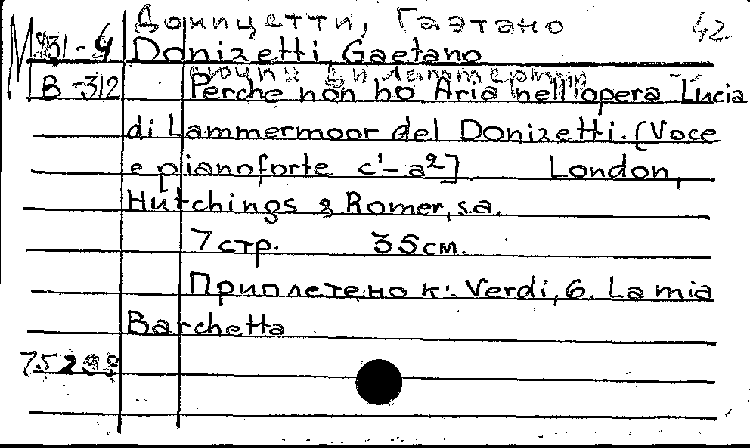 Доницетти, Гаэтано 42
М 931-4 Donizetti, Gaetano
В-312 Лючия ди Ламмермур
Perche non ho Aria nell'opera Lucia
di Lammermoor del Donizetti. (Voce
e pianoforte c¹-a²] London,
Hutchings & Romer, s.a.
7 стр. 35 см.
Приплетено к: Verdi, G. La mia
Barchetta